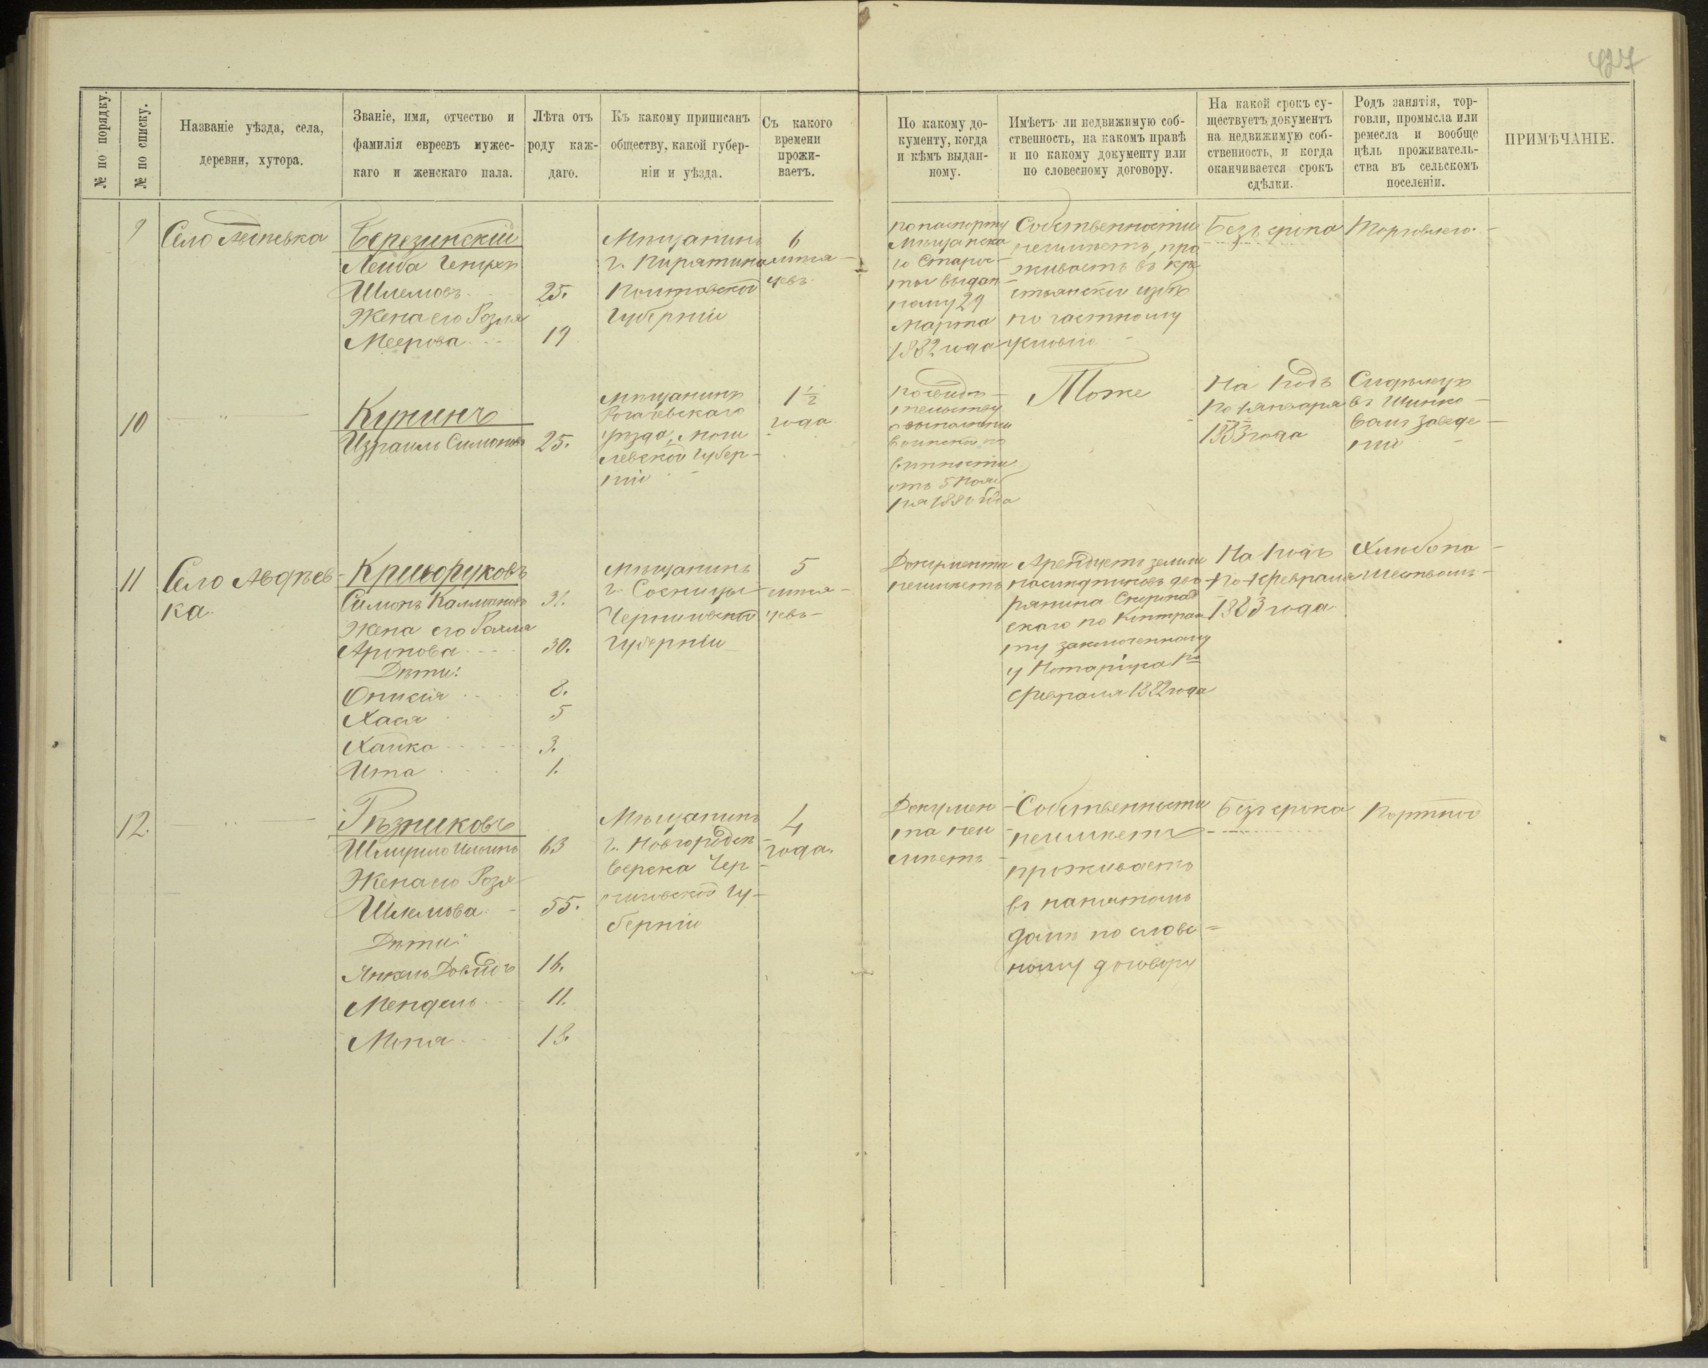 427
№ по порядку.
№ по списку.
Названіе уѣзда, села,
деревни, хутора.
Званіе, имя, отчество и
фамилія евреевъ мужес-
каго и женскаго пала.
Лѣта отъ
роду каж-
даго.
Къ какому приписанъ
обществу, какой губер-
ніи и уѣзда.
Съ какого
времени
прожи-
ваетъ.
По какому до-
кументу, когда
и кѣмъ выдан-
ному.
Имѣетъ ли недвижимую соб-
ственность, на какомъ правѣ
и по какому документу или
по словесному договору.
На какой срокъ су-
ществуетъ документъ
на недвижимую соб-
ственность, и когда
оканчивается срокъ
сдѣлки.
Родъ занятія, тор-
говли, промысла или
ремесла и вообще
цѣль проживатель-
ства въ сельскомъ
поселеніи.
ПРИМѢЧАНІЕ.
9
Село
Березинскій
Лейба
Шлемовъ
25.
Жена его Розля
Меерова
19
Мѣщанинъ
г. Пирятина
Полтавской
Губерніи
6
по паспорту
Мѣщанска
го Старос
ты выдан
ному 29
Марта
1882 года
Собственности
неимѣетъ, про
живаетъ въ кре
стьянской избѣ
по частному
условію
Безъ срока
Торговлею
10
Кунинъ
Израиль Симоновъ
25.
Мѣщанинъ
Рогачевскаго
уѣзда, Моги
левской Губер-
ніи
1½
года
по свидѣ-
тельству
о выполненіи
воинской по
винности
отъ 5 Нояб
Тоже
На 1 годъ
по 1 января
1883 года
Сидѣлецъ
въ Шинко-
вомъ заведе-
ніи
11
Село Авдѣев-
ка.
Криворуковъ
Симонъ Калмановъ
Жена его
Аронова
30.
Дѣти:
8.
Хася
5
Хайка
3.
Ита
1.
Мѣщанинъ
г. Сосницы
Черниговской
Губерніи
5
Документа
неимѣетъ
Арендуетъ землю
рянина
скаго по Контрак
ту заключенному
у Нотаріуса 1го
Февраля 1882 года
На 1 годъ
по 1 февраля
1883 года
Хлебопа-
шествомъ
12.
Рѣзниковъ
63
Жена его Розя
Шлемова
55.
Дѣти:
Янкель Довидъ
16.
Мендель
11.
Моня
13.
Мѣщанинъ
г. Новгородсѣ
верска Чер-
ниговской Гу-
берніи
4
года.
Докумен
та неи
мѣетъ
Собственности
неимѣетъ
проживаетъ
въ нанятомъ
домѣ по слове-
ному договору
Безъ срока
Портной